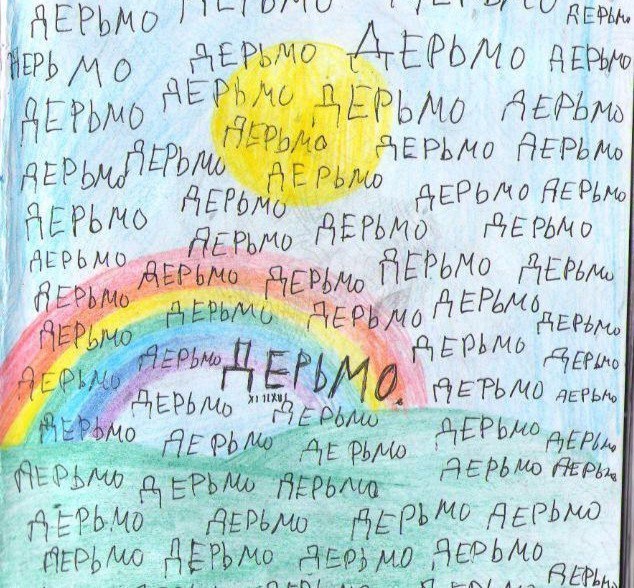 ДЕРЬМО ДЕРЬМО ДЕРЬМО ДЕРЬМО
ДЕРЬМО ДЕРЬМО ДЕРЬМО ДЕРЬМО
ДЕРЬМО ДЕРЬМО ДЕРЬМО ДЕРЬМО
ДЕРЬМО ДЕРЬМО ДЕРЬМО
ДЕРЬМО ДЕРЬМО ДЕРЬМО
ДЕРЬМО ДЕРЬМО ДЕРЬМО
ДЕРЬМО ДЕРЬМО ДЕРЬМО
ДЕРЬМО ДЕРЬМО ДЕРЬМО ДЕРЬМО
ДЕРЬМО ДЕРЬМО
ДЕРЬМО ДЕРЬМО ДЕРЬМО ДЕРЬМО
ДЕРЬМО ДЕРЬМО ДЕРЬМО
ДЕРЬМО ДЕРЬМО ДЕРЬМО
ДЕРЬМО ДЕРЬМО. ДЕРЬМО ДЕРЬМО
ДЕРЬМО ДЕРЬМО
ДЕРЬМО ДЕРЬМО ДЕРЬМО ДЕРЬМО ДЕРЬМО
ДЕРЬМО ДЕРЬМО ДЕРЬМО ДЕРЬМО ДЕРЬМО
ДЕРЬМО ДЕРЬМО ДЕРЬМО ДЕРЬМО
ДЕРЬМО ДЕРЬМО ДЕРЬМО ДЕРЬМО
ДЕРЬМО